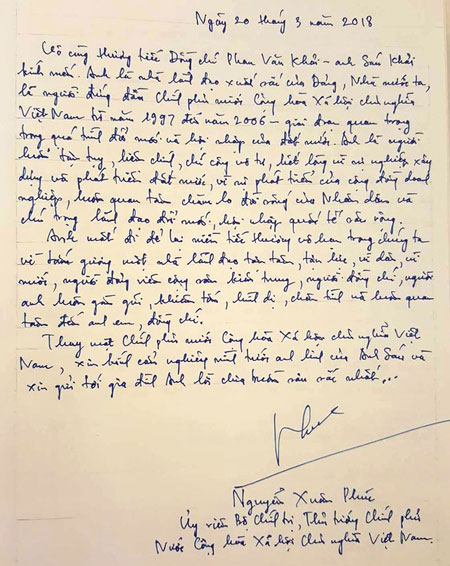 Ngày 20 tháng 3 năm 2018
Vô cùng thương tiếc Đồng chí Phan Văn Khải – anh Sáu Khải
kính mến. Anh là nhà lãnh đạo xuất sắc của Đảng, Nhà nước ta,
là người đứng đầu Chính phủ nước Cộng hòa Xã hội chủ nghĩa
Việt Nam từ năm 1997 đến năm 2006 – giai đoạn quan trọng
trong quá trình đổi mới và hội nhập của đất nước. Anh là người
luôn tận tụy, liêm chính, chí công vô tư, hết lòng vì sự nghiệp xây
dựng và phát triển đất nước, vì sự phát triển của cộng đồng doanh
nghiệp, luôn quan tâm chăm lo đời sống của Nhân dân và
chú trọng lãnh đạo đổi mới, hội nhập quốc tế sâu rộng.
Anh mất đi để lại niềm tiếc thương vô hạn trong chúng ta
về tấm gương một nhà lãnh đạo tận tâm, tận lực, vì dân, vì
nước, người đảng viên cộng sản kiên trung, người đồng chí, người
anh luôn gần gũi, khiêm tốn, bình dị, chân tình và luôn quan
tâm đến anh em, đồng chí.
Thay mặt Chính phủ nước Cộng hòa Xã hội chủ nghĩa Việt
Nam, xin kính cẩn nghiêng mình trước anh linh của Anh Sáu và
xin gửi tới gia đình Anh lời chia buồn sâu sắc nhất...
Phuc
Nguyễn Xuân Phúc
Ủy viên Bộ Chính trị, Thủ tướng Chính phủ
Nước Cộng hòa Xã hội Chủ nghĩa Việt Nam.